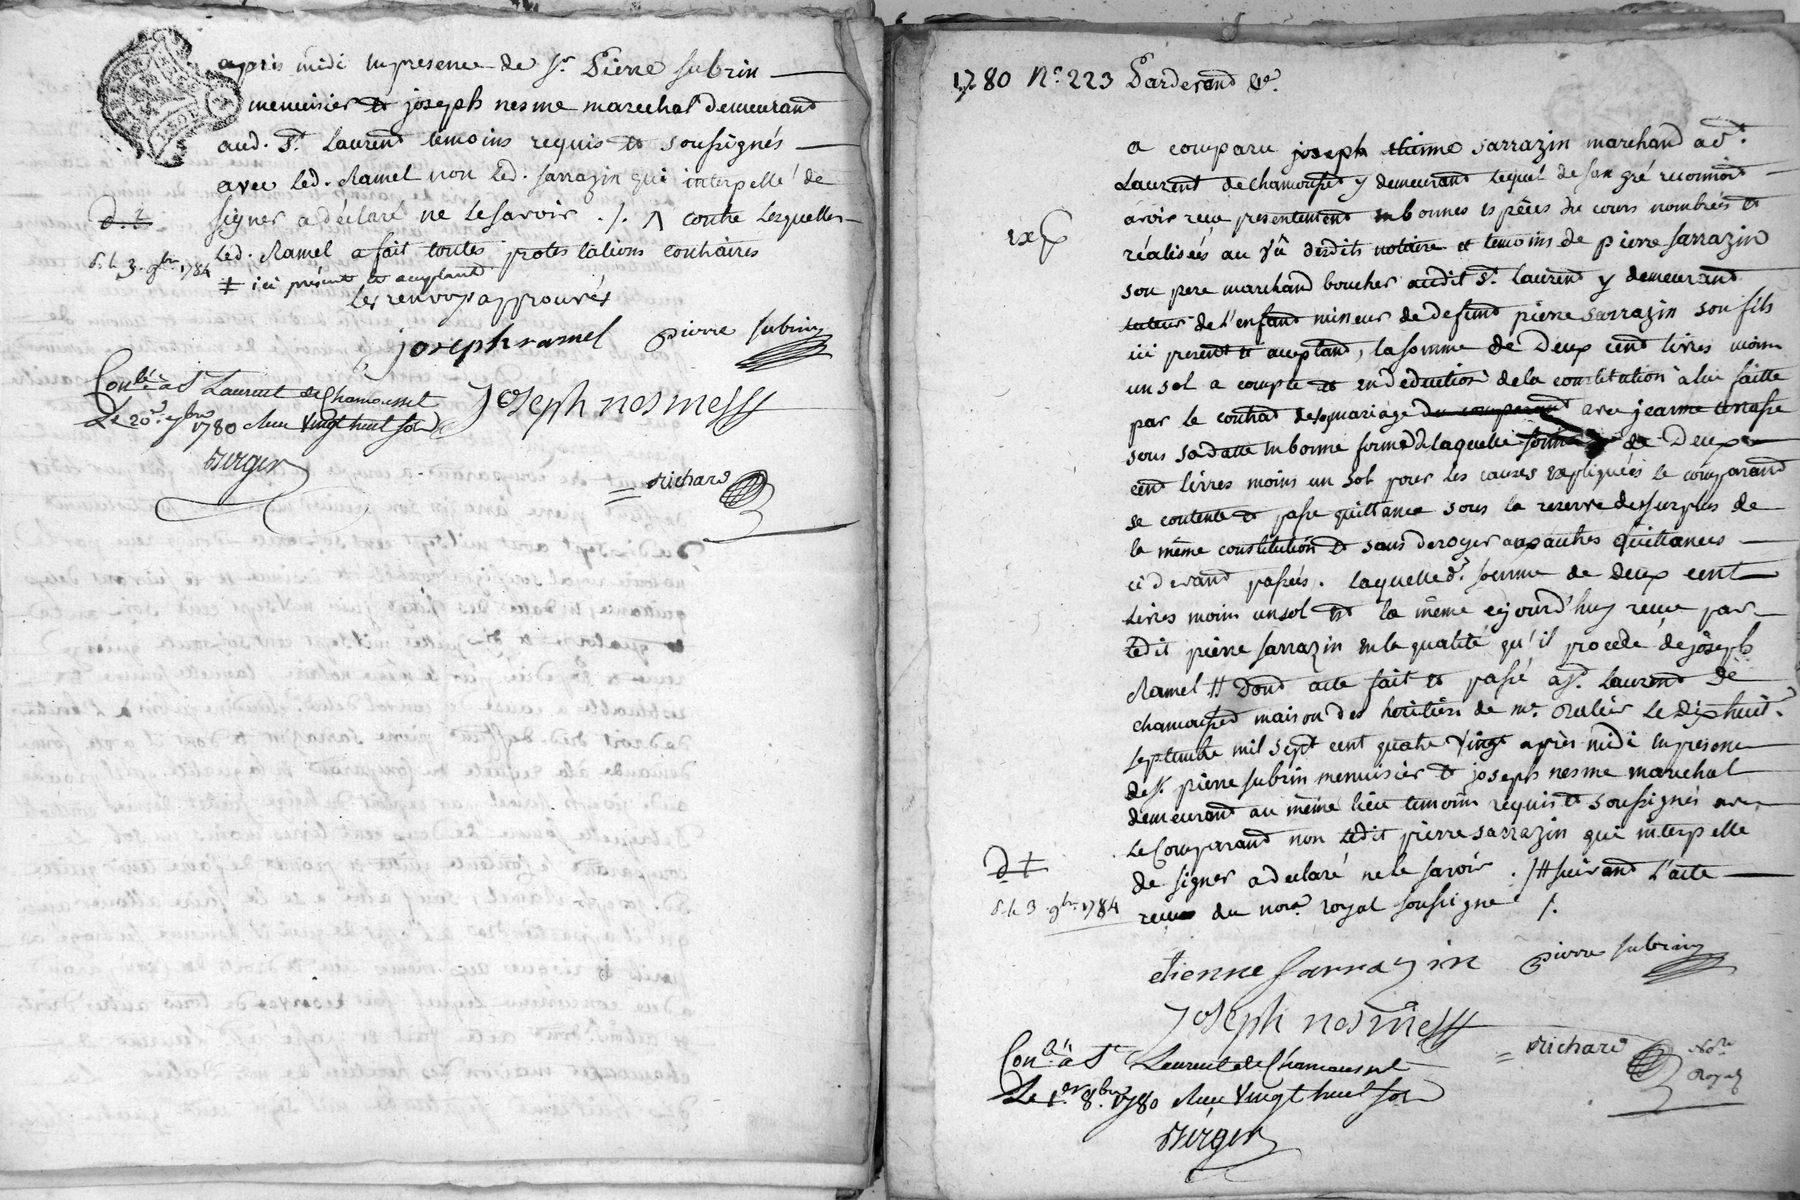 après midi en presence de Sr. Pierre Subrin
menuisier et joseph nesme marechal demeurant
aud. St. Laurent temoins requis et soussignés
avec led. Ramel non led. Sarrazin qui interpellé de
signer a déclaré ne le savoir ./. Λ contre lesquelles
led. Ramel a fait toutes protestations contraires
‡ ici présent et acceptant
les renvoys approuvés
d. t.
d. le 3. 9bre. 1784
joseph ramel pierre subrin
Conlé. a St Laurent de Chamousset
Le 20e. 7bre 1780 Reçu Vingt huit sols
Joseph nesme
Berger
richard
1780 N°. 223 Pardevant &a.
a comparu joseph etienne sarrazin marchand a St.
Laurent de chamousset y demeurant lequel de son gré reconnoit
avoir reçu presentement en bonnes espèces du cours nombrées et
exp
réalisées au vû desdits notaire et temoins de pierre Sarrazin
son pere marchand boucher audit St. Laurent y demeurant
tuteur de l'enfant mineur de defunt pierre sarrazin son fils
ici present et acceptant, la somme de Deux cent livres moins
un sol a compte et en deduction de la constitution a lui faitte
par le contrat de son mariage du comparant avec jeanne
sous sa datte en bonne forme de laquelle somme de Deux
cent livres moins un sol pour les causes expliquées le comparant
se contente et passe quittance sous la reserve du surplus de
la même constitution et sans deroger aux autres quittances
ci devant passées. laquelle d. somme de deux cent
livres moins un sol est la même cejourd'huy reçue par
ledit pierre Sarrazin en la qualité qu'il procede de joseph
Ramel # Dont acte fait et passé a St. Laurent de
chamousset maison des heritiers de me. Ralier le dixhuit
septembre mil sept cent quatre vingt après midi en presence
de Sr. pierre subrin menuisier et joseph nesme marechal
demeurant au même lieu temoins requis et soussignés avec
le Comparant non ledit pierre sarrazin qui interpellé
de signer a declaré ne le savoir . /# suivant l'acte
d t
reçu du nore. royal soussigné ./.
d. le 3. 9bre. 1784
etienne Sarrazin pierre subrin
Joseph nesme
richard Nore Royal
Conlé a St Laurent de Chamousset
Le 1er. 8bre. 1780 Reçu Vingt huit sols
Berger